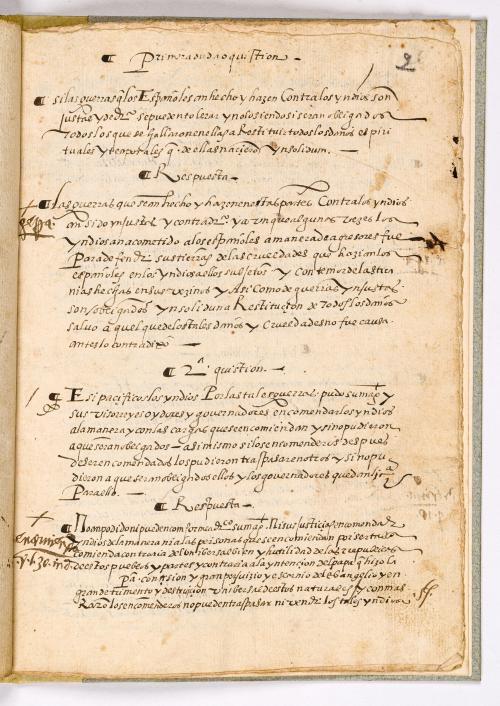 ¶ Primera duda o quistion –
2
¶ si las guerras q̃ los Españoles an hecho y hazen Contra los yndios son
justas y de dr̃o se pueden tolerar y no lo siendo si seran obligados
todos los que se hallaron en ellas a Restituir todos los daños espiri
tuales y temporales q̃ de ellas nacieron yn solidum. –
¶ Respuesta –
¶ las guerras que se an hecho y hazen en estas partes Contra los yndios
an sido ynjustas y contra dr̃o y aunque algunas vezes los
yndios an acometido a los españoles a manera de agresores fue
Para defender sus tierras de las crueldades que hazian los
españoles en los yndios a ellos subjetos y con temor de las tira
nias hechas en sus vezinos y Asi Como de guerras ynjustas
son obligados yn solidum a Restituçion de todos los daños
salvo aquel que de los tales daños y crueldades no fue causa
antes lo contradixo –
¶ 2ª quistion. –
¶ E si pacificos los yndios Por las tales guerras. pudo su mag̃ y
sus visorreyes oydores y governadores encomendar los yndios
a la manera y con las cargas que se encomiendan y si no pudieron
a que seran obligados – asimismo si los encomenderos despues
de ser encomendados los pudieron traspasar en otros y si no pu
dieron a que seran obligados ellos y los governadores que dan
Para ello. –
¶ Respuesta –
¶ No an podido ni pueden conforme a dr̃o su mag̃ ni sus justicias encomendar
yndios de la manera ni a las personas que se encomiendan por ser tal en
comienda contraria del universal bien y hutilidad de las republicas
de estos pueblos y partes y contraria a la yntencion del papa q̃ hizo la
y gran perjuizio y del Evangelio y en
gran detrimento y destruiçion universal de estos naturales y con mas
Razon los encomenderos no pueden traspasar ni vender los tales yndios